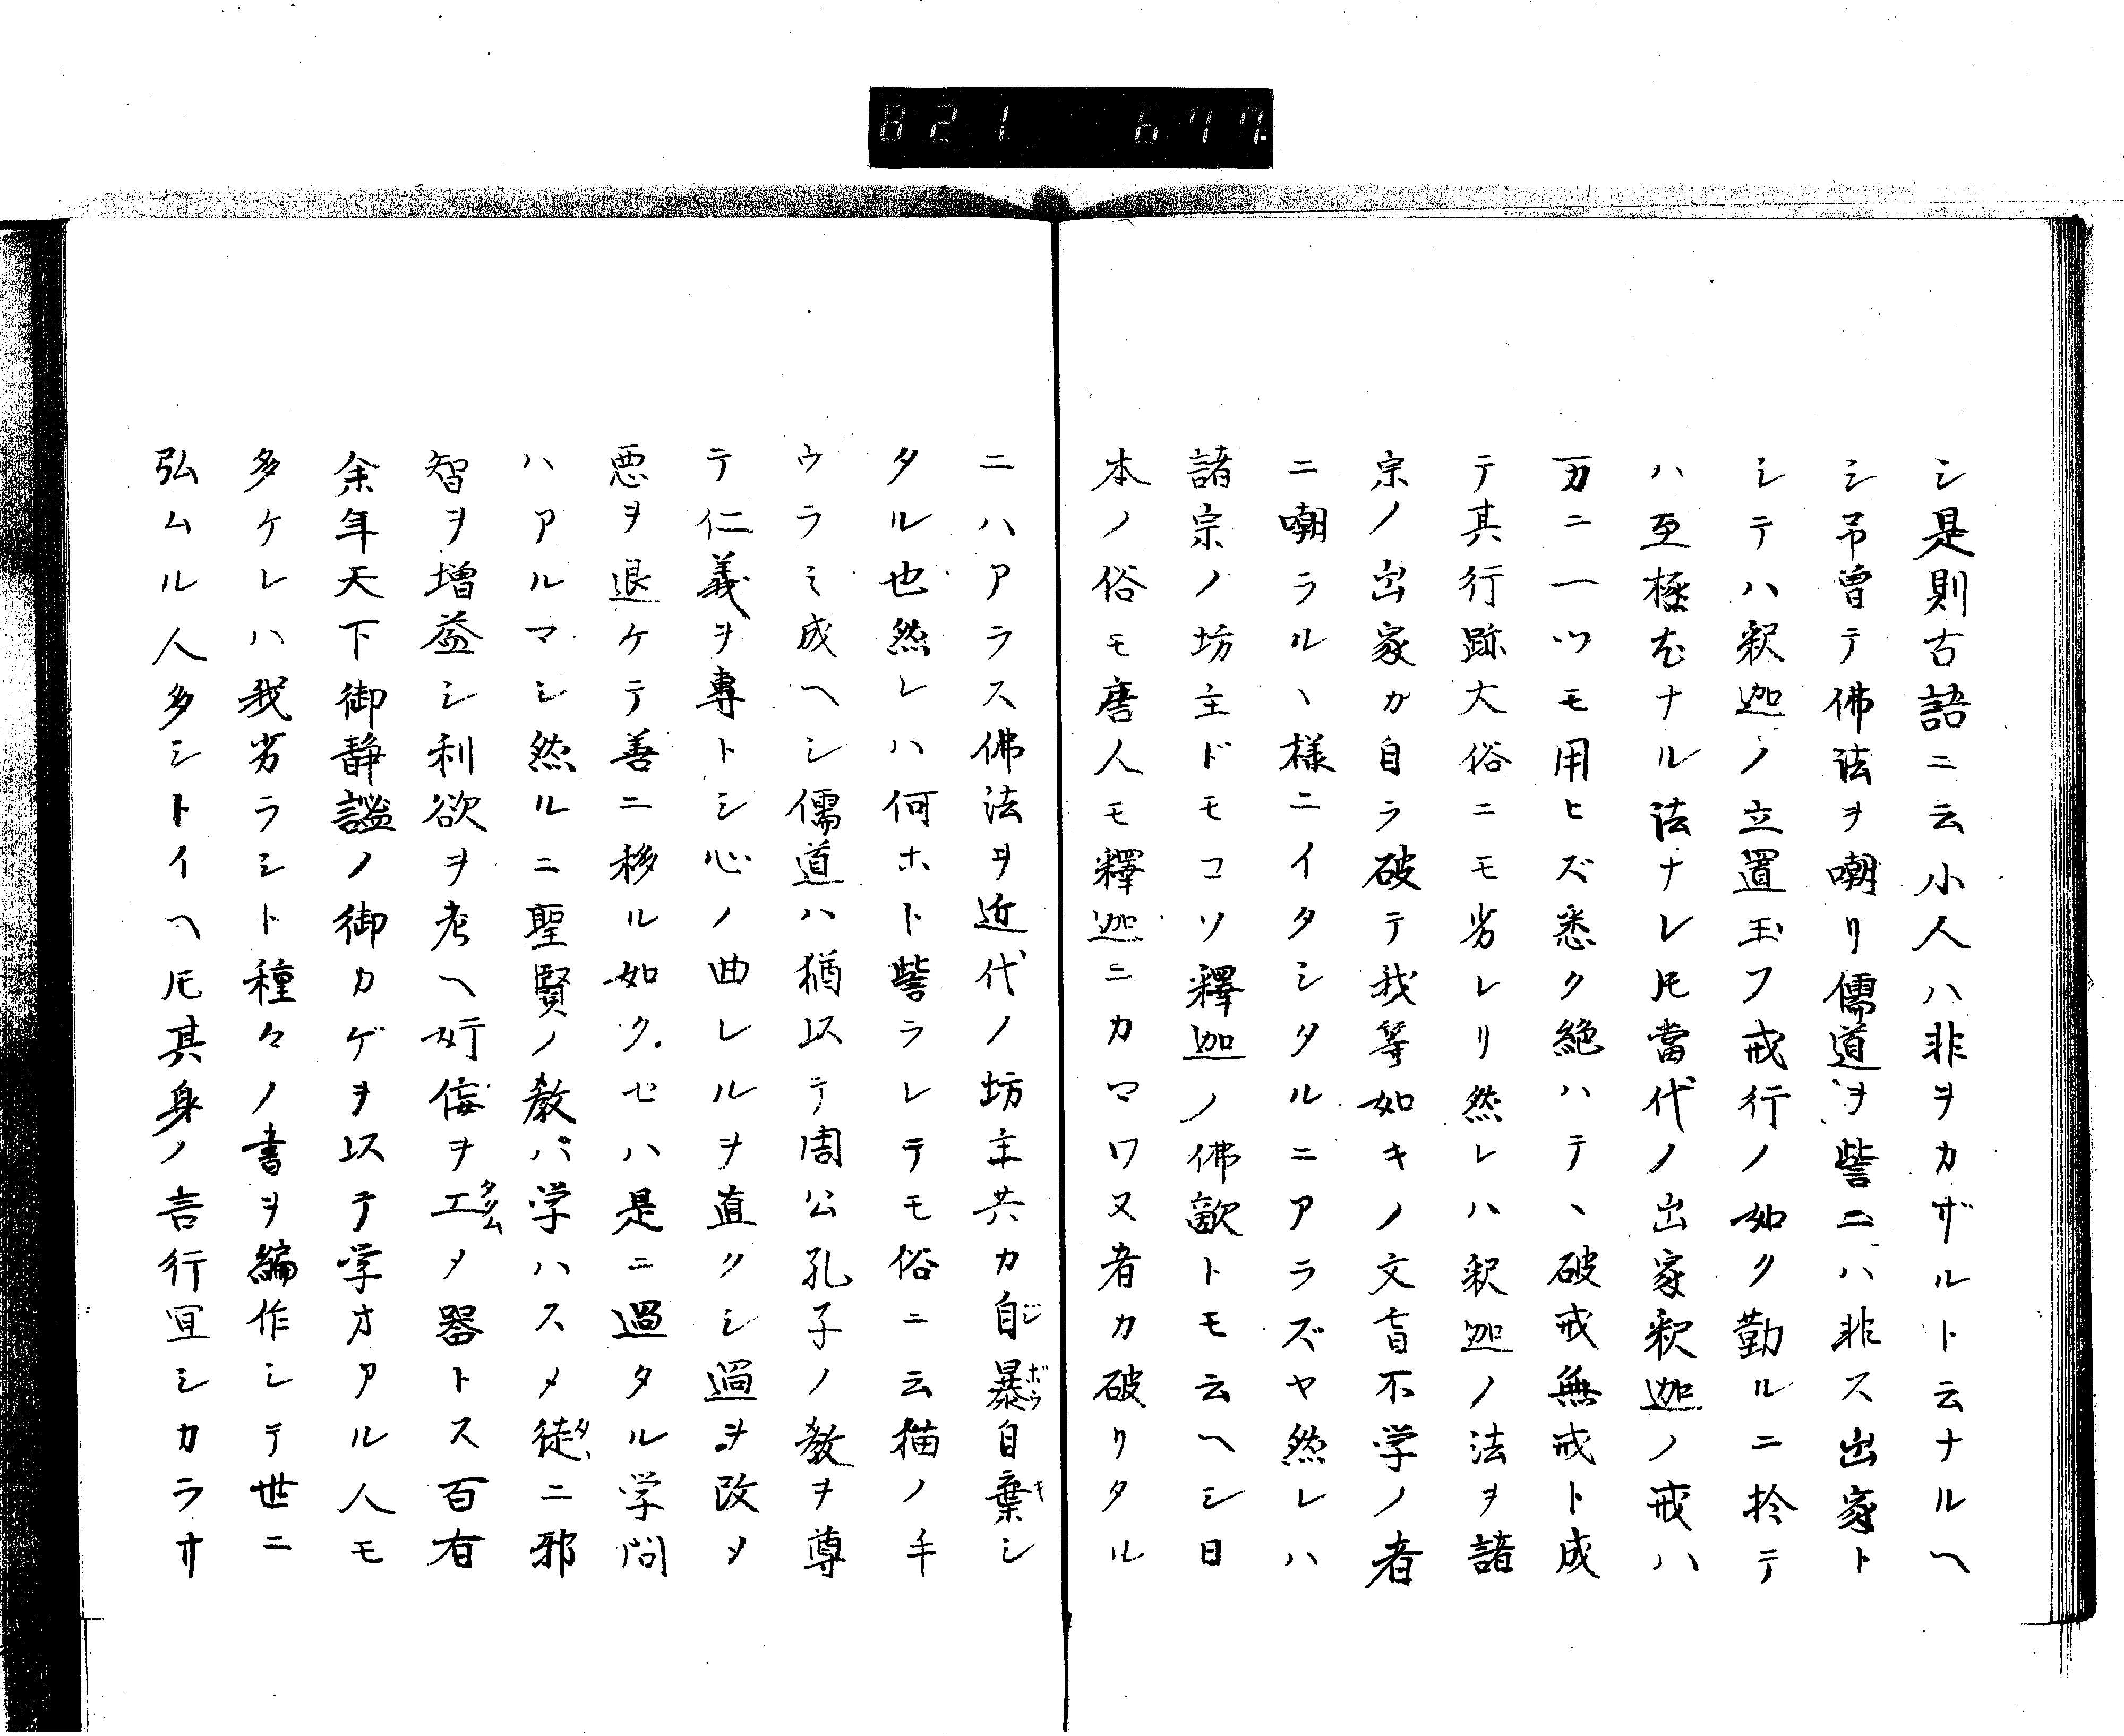 821 677.
シ是則古語ニ云小人ハ非ヲカザルト云ナルヘ
シ吊曽テ佛法ヲ嘲リ儒道ヲ訾ニハ非ス出家ト
シテハ釈迦ノ立置玉フ戒行ノ如ク勤ルニ扵テ
ハ至極尤ナル法ナレ𪜈當代ノ出家釈迦ノ戒ハ
万カニ一ツモ用ヒズ悉ク絶ハテヽ破戒無戒ト成
テ其行跡大俗ニモ劣レリ然レハ釈迦ノ法ヲ諸
宗ノ出家カ自ラ破テ我等如キノ文盲不学ノ者
ニ嘲ラルヽ様ニイタシタルニアラズヤ然レハ
諸宗ノ坊主ドモコソ釋迦ノ佛敵トモ云ヘシ日
本ノ俗モ唐人モ釋迦ニカマワヌ者カ破リタル
ニハアラス佛法ヲ近代ノ坊主共カ自暴自棄シ
タル也然レハ何ホト訾ラレテモ俗ニ云猫ノ手
ウラミ成ヘシ儒道ハ猶以テ周公孔子ノ教ヲ尊
テ仁義ヲ專トシ心ノ曲レルヲ直クシ過ヲ改メ
悪ヲ退ケテ善ニ移ル如クセハ是ニ過タル学問
ハアルマシ然ルニ聖賢ノ教バ学ハスメ徒ニ邪
智ヲ増益シ利欲ヲ考ヘ奸侫ヲ工メ器トス百有
余年天下御静謐ノ御カゲヲ以テ学才アル人モ
多ケレハ我劣ラシト種々ノ書ヲ編作シテ世ニ
弘ムル人多シトイヘ𪜈其身ノ言行宜シカラサ